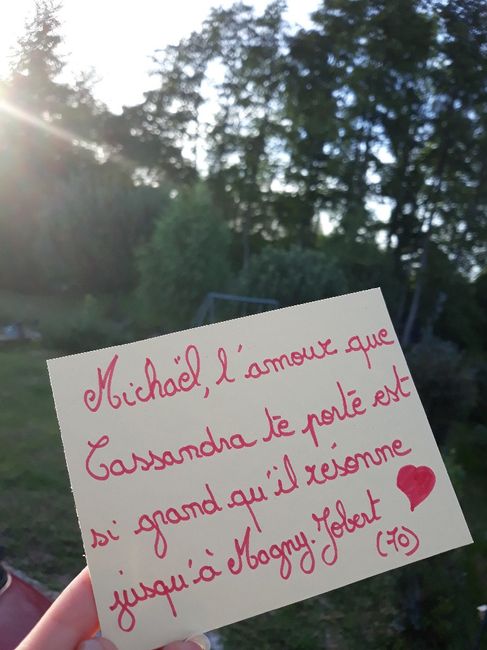 Michaël, l'amour que
Cassandra te porte est
si grand qu'il résonne
jusqu'à Magny-Jobert
(70)